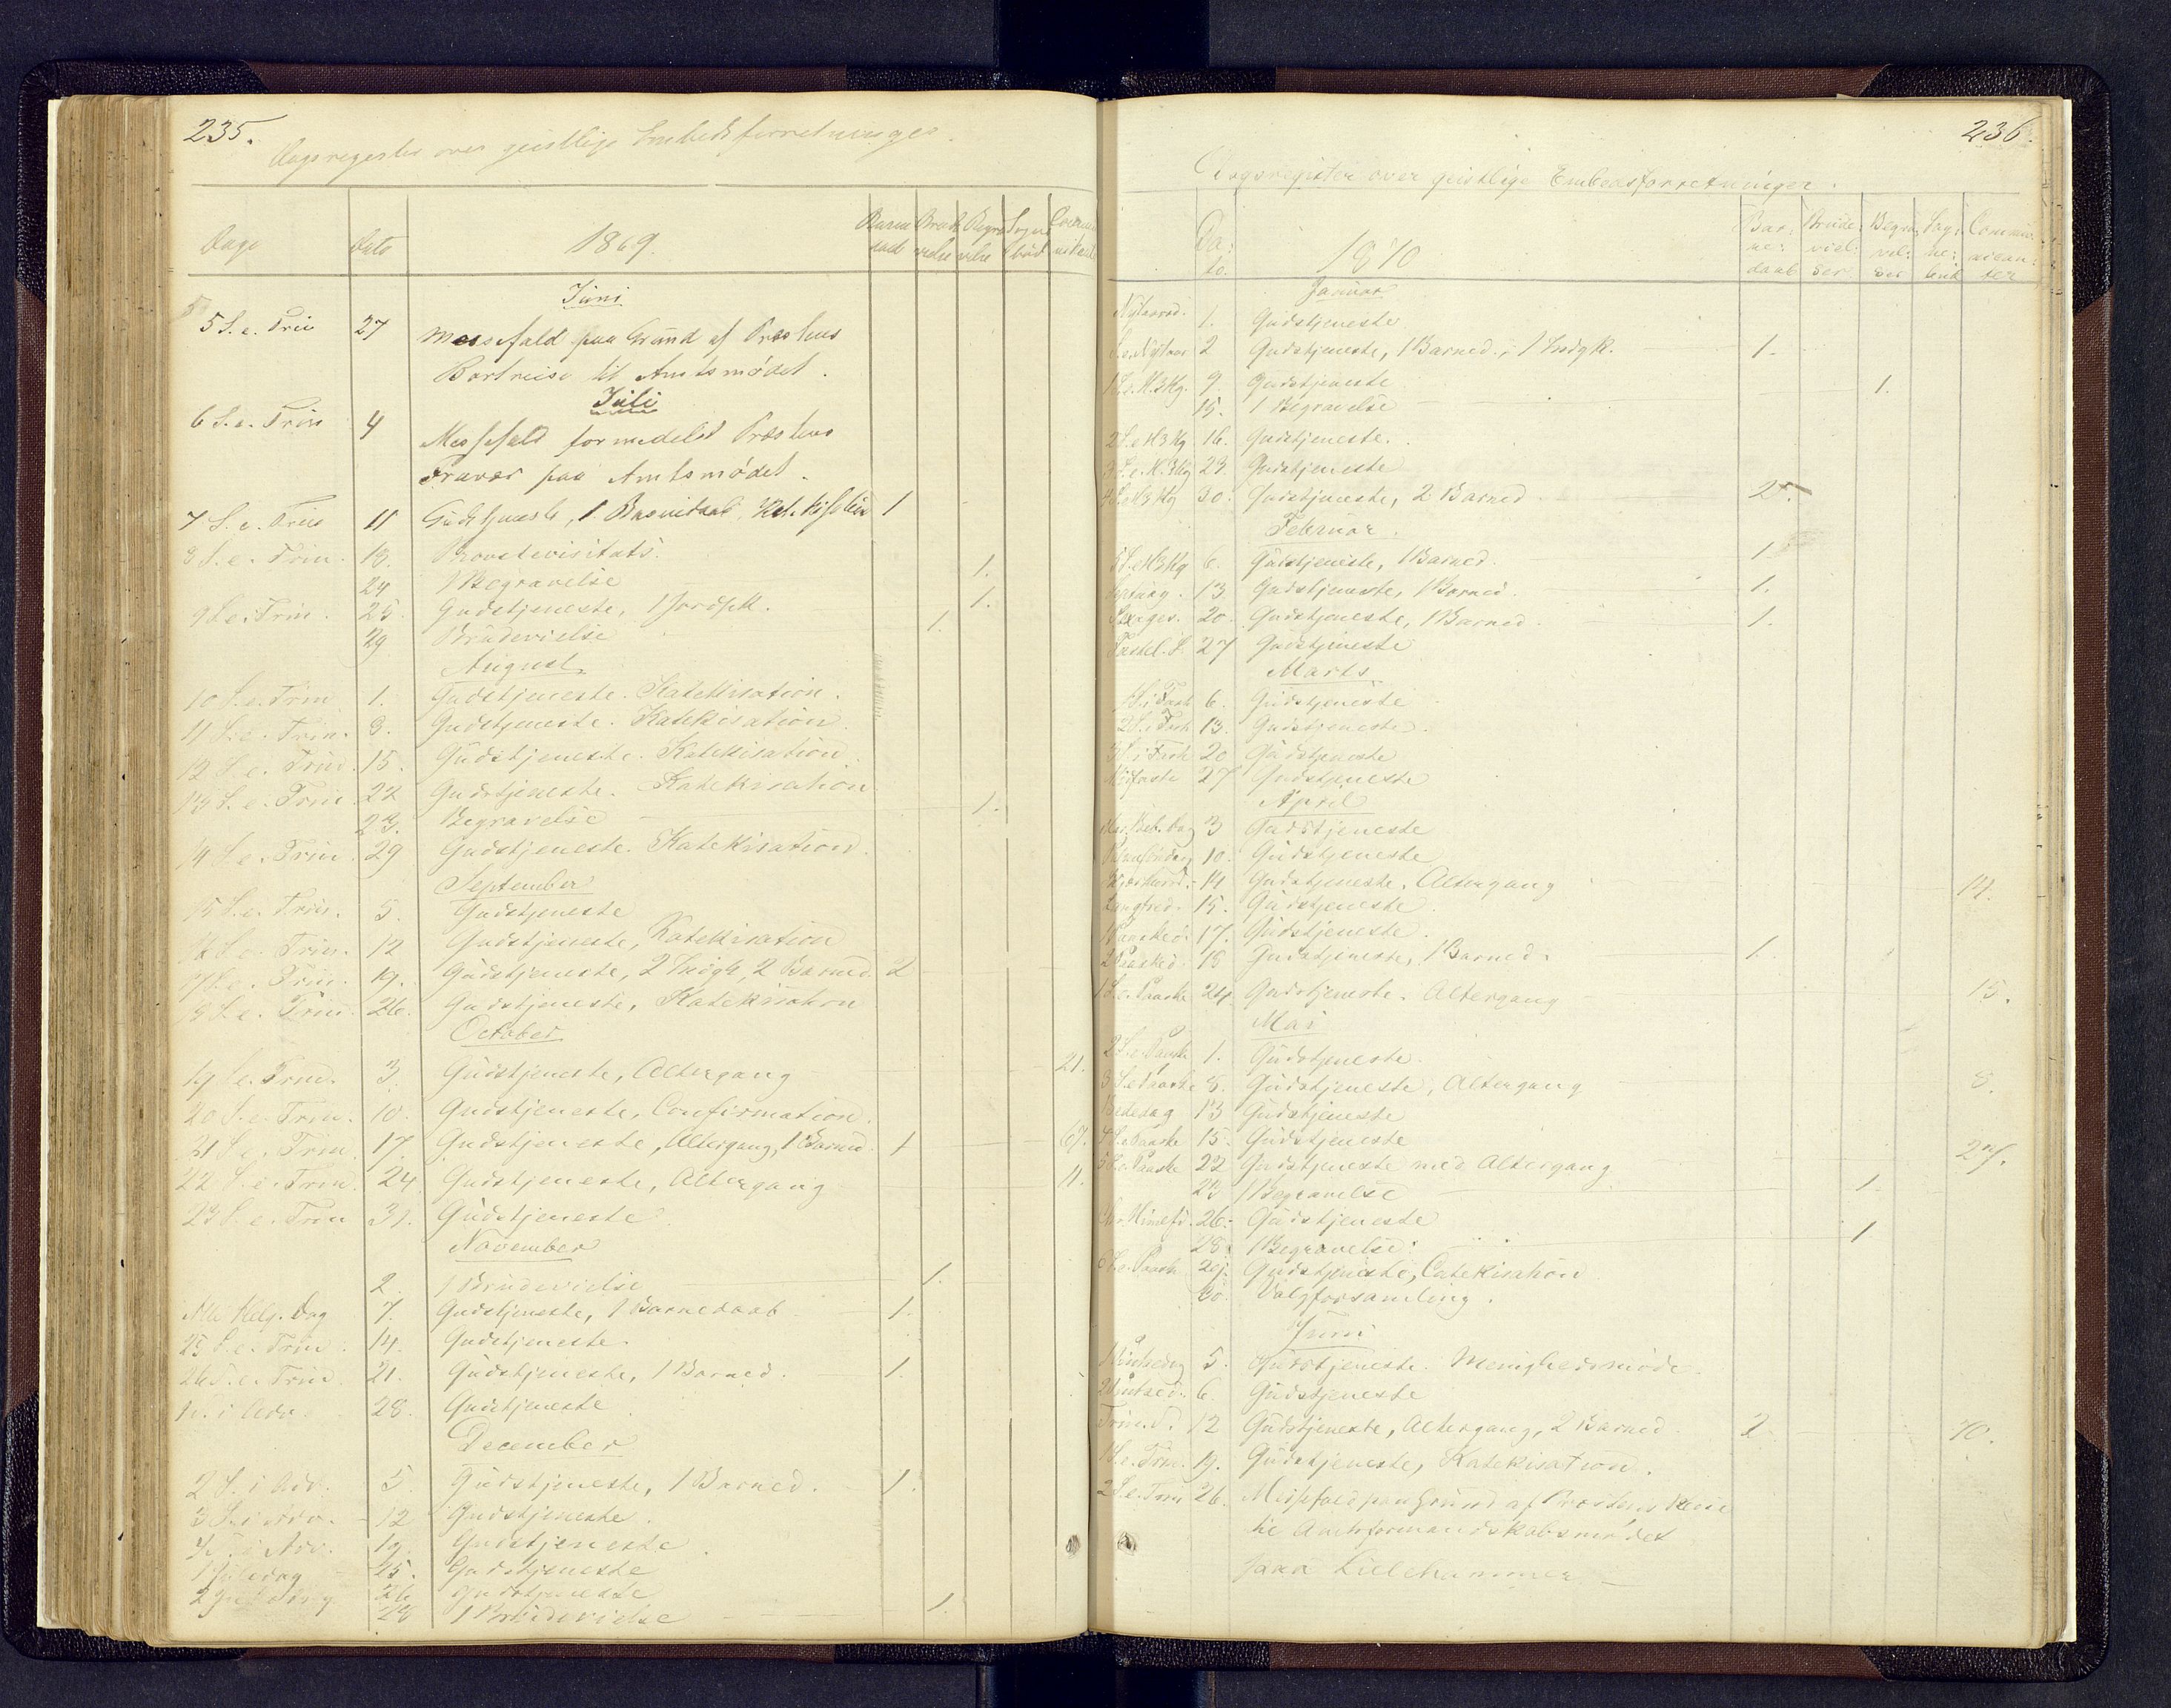 235.
Dagsregister over geistlige Embedsforretninger.
Dage Dato 1869. Barnedaab Brudevielse Begravelse Sognebud Communikanter
Juni
5 S. e. Trin 27 Messefald paa Grund af Præstens
Bortreise til Amtsmødet.
Juli
6 S. e. Trin 4 Messefald formedelst Præstens
Fravær paa Amtsmødet.
7 S. e. Trin 11 Gudstjeneste, 1 Barnedaab, 1
8 S. e. Trin. 18. Provstevisitats.
24 1 Begravelse 1.
9 S. e. Trin. 25. Gudstjeneste, 1 Jordfk. 1.
29 Brudevielse 1.
August
10 S. e. Trin 1. Gudstjeneste. Katekisation.
11 S. e. Trin. 8. Gudstjeneste. Katekisation.
12 S. e. Trin. 15. Gudstjeneste. Katekisation.
13 S. e. Trin 22 Gudstjeneste. Katekisation
23. Begravelse 1.
14 S. e. Trin. 29 Gudstjeneste. Katekisation.
September
15 S. e. Trin. 5. Gudstjeneste
16 S. e. Trin. 12 Gudstjeneste, Katekisation
17 S. e. Trin. 19. Gudstjeneste, 2 Indgk, 2 Barned. 2
18 S. e. Trin. 26. Gudstjeneste, Katekisation
October
19 S. e. Trin. 3. Gudstjeneste, Altergang 21.
20 S. e. Trin. 10. Gudstjeneste, Confirmation.
21 S. e. Trin. 17. Gudstjeneste, Altergang, 1 Barned. 1 67.
22 S. e. Trin. 24. Gudstjeneste, Altergang 11.
23 S. e. Trin 31. Gudstjeneste
November
2. 1 Brudevielse 1.
Alle Helg. Dag 7. Gudstjeneste, 1 Barnedaab 1.
25 S. e. Trin. 14. Gudstjeneste
26 S. e. Trin. 21. Gudstjeneste, 1 Barned. 1.
1 S. i Adv. 28. Gudstjeneste
December
2 S. i Adv. 5. Gudstjeneste, 1 Barned. 1.
3 S. i Adv. 12 Gudstjeneste.
4 S. i Adv. 19. Gudstjeneste
1 Juledag 25. Gudstjeneste
2 Juledag 26 Gudstjeneste
28 1 Brudevielse 1.
236.
Dagsregister over geistlige Embedsforretninger.
Dato. 1870 Barnedaab Brudevielser Begravelser Sognebud Communicanter
Januar
Nytaarsd. 1. Gudstjeneste
S. e. Nytaar 2 Gudstjeneste, 1 Barned., 1 Indgk. 1.
1 S. e. H. 3 Kg. 9. Gudstjeneste
15. 1 Begravelse 1.
2 S. e. H 3 Kg 16. Gudstjeneste.
3 S. e. H. 3 Kg 23. Gudstjeneste
4 S. e. H 3 Kg 30. Gudstjeneste, 2 Barned 2.
Februar.
5 S. e. H 3 Kg 6. Gudstjeneste, 1 Barned. 1
13 Gudstjeneste, 1 Barned. 1.
Sexages. 20. Gudstjeneste, 1 Barned. 1.
Fastel. S. 27 Gudstjeneste
Marts
1 S. i Faste 6. Gudstjeneste
2 S. i Faste 13. Gudstjeneste.
3 S. i Faste 20 Gudstjeneste
Midfaste 27 Gudstjeneste
April
Mar. Beb. Dag 3 Gudstjeneste
Palmesøndag 10. Gudstjeneste
14 Gudstjeneste. Altergang 14.
Langfred. 15. Gudstjeneste.
1 Paasked. 17. Gudstjeneste.
2 Paasked. 18 Gudstjeneste, 1 Barned. 1.
1 S. e. Paaske 24 Gudstjeneste. Altergang 15.
Mai
2 S. e. Paaske 1. Gudstjeneste.
3 S. e. Paaske 8. Gudstjeneste, Altergang 8.
Bededag 13 Gudstjeneste
4 S. e. Paaske 15. Gudstjeneste
5 S. e. Paaske 22 Gudstjeneste med Altergang 27.
23 1 Begravelse 1.
Chr. Himmelfd. 26. Gudstjeneste
28. 1 Begravelse. 1
6 S. e. Paaske 29. Gudstjeneste, Catekisation
30. Valgforsamling.
Juni
1 Pintsedag 5. Gudstjeneste. Menighedsmøde.
2 Pintsed. 6. Gudstjeneste
Trin. S. 12 Gudstjeneste, Altergang, 2 Barned 2 70.
1 S. e. Trin. 19. Gudstjeneste, Katekisation.
2 S. e. Trin 26. Messefald paa Grund af Præstens Reise
til Amtsformandskabsmødet
paa Lillehammer